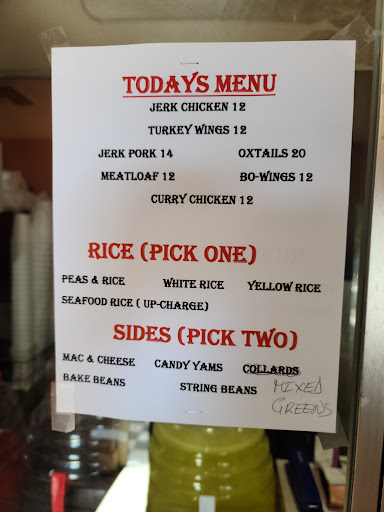 TODAYS MENU
JERK CHICKEN 12
TURKEY WINGS 12
JERK PORK 14 OXTAILS 20
MEATLOAF 12 BO-WINGS 12
CURRY CHICKEN 12
RICE (PICK ONE)
PEAS & RICE WHITE RICE YELLOW RICE
SEAFOOD RICE ( UP-CHARGE)
SIDES (PICK TWO)
MAC & CHEESE CANDY YAMS COLLARDS
BAKE BEANS STRING BEANS MIXED
GREENS